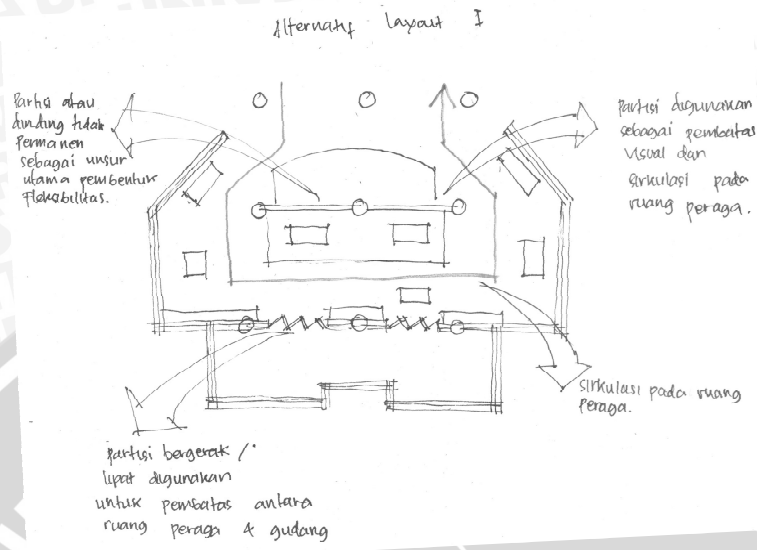 Alternatif Layout I
Partisi atau
dinding tidak
permanen
sebagai unsur
utama pembentuk
Fleksibilitas.
Partisi digunakan
sebagai pembatas
visual dan
sirkulasi pada
ruang peraga.
Sirkulasi pada ruang
Peraga.
Partisi bergerak /
lipat digunakan
untuk pembatas antara
ruang peraga & gudang